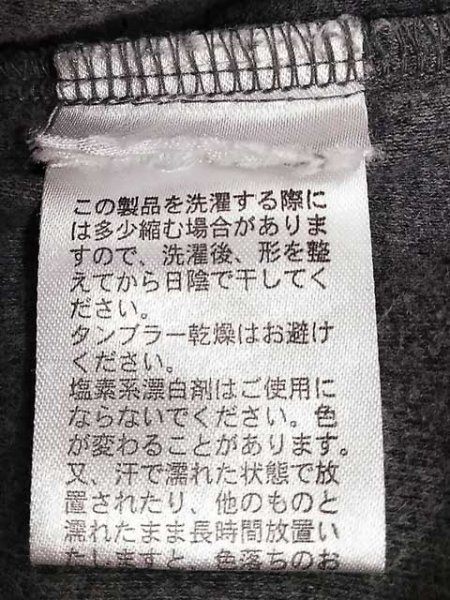 この製品を洗濯する際に
は多少縮む場合がありま
すので、洗濯後、形を整
えてから日陰で干してく
ださい。
タンブラー乾燥はお避け
ください。
塩素系漂白剤はご使用に
ならないでください。色
が変わることがあります。
又、汗で濡れた状態で放
置されたり、他のものと
濡れたまま長時間放置い
たしますと、色落ちのお